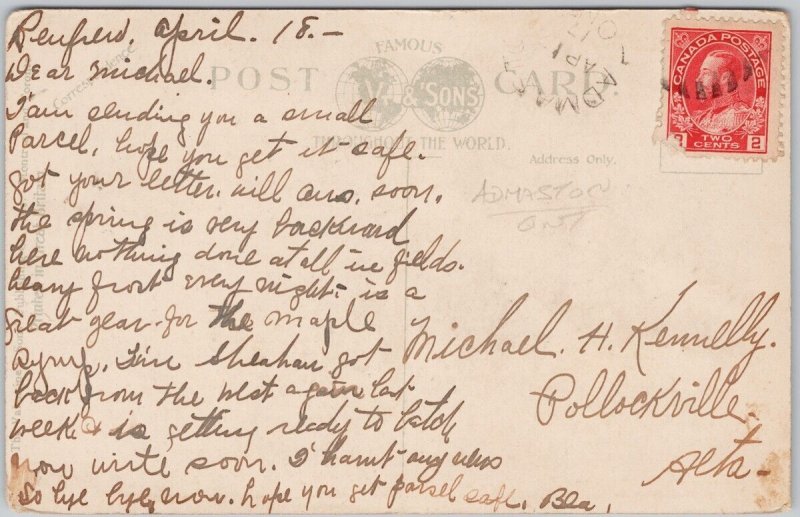 Renfrew, April. 18.—
Dear Michael.
I am sending you a small
Parcel, hope you get it safe.
got your letter. will ans. soon.
the spring is very backward
here nothing done at all in fields.
heavy frost every night. is a
great year for the maple
syrup. Tim Sheahan got
back from the west again last
week & is getting ready to batch
now write soon. I havnt any news
So bye bye, now. hope you get parsel safe. Bea.
Correspondence
FAMOUS
POST CARD
& SONS
THROUGHOUT THE WORLD.
Address Only.
ADMASTON
ONT
CANADA POSTAGE
2 TWO CENTS 2
ADMAS
AP
ON
Michael. H. Kennelly.
Pollockville.
Alta—